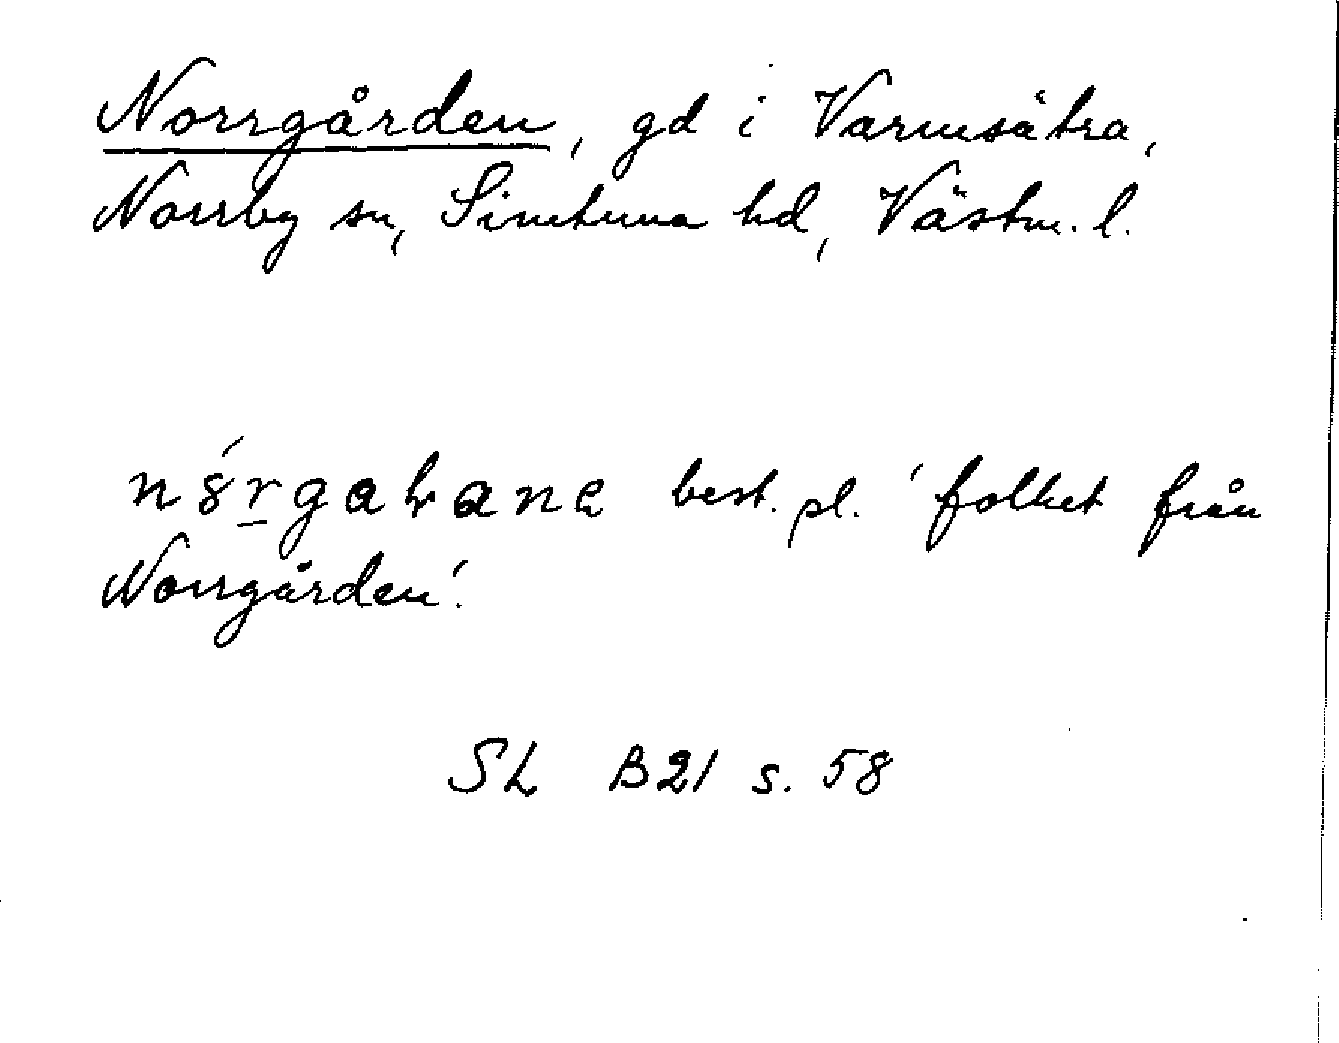 Norrgården, gd i Varmsätra,
Norrby sn, Simtuna hd, Västm. l.
best. pl. 'folket från
Norrgården'.
SL B21 s. 58